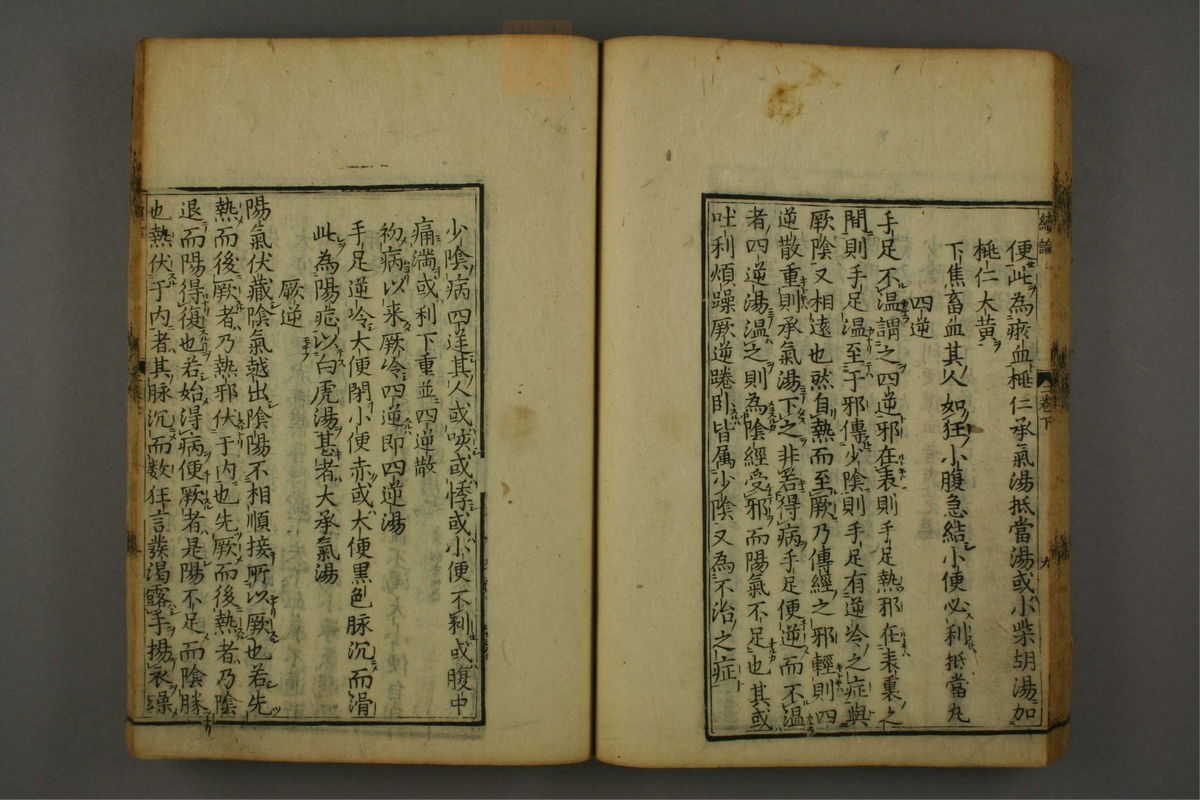 續論
卷下
九
便此為瘀血桃仁承氣湯抵當湯或小柴胡湯加
桃仁大黃
下焦畜血其人如狂小腹急結小便必利抵當丸
四逆
手足不溫謂之四逆邪在表則手足熱邪在表裏之
間則手足溫至于邪傳少陰則手足有逆冷之症與
厥陰又相遠也然自熱而至厥乃傳經之邪輕則四
逆散重則承氣湯下之非若得病手足便逆而不溫
者四逆湯溫之則為陰經受邪而陽氣不足也其或
吐利煩躁厥逆踡臥皆属少陰又為不治之症
少陰病四逆其人或咳或悸或小便不利或腹中
痛満或利下重並四逆散
初病以来厥冷四逆即四逆湯
手足逆冷大便閉小便赤或大便黒色脉沉而滑
此為陽症以白虎湯甚者大承氣湯
厥逆
陽氣伏藏陰氣越出陰陽不相順接所以厥也若先
熱而後厥者乃熱邪伏于内也先厥而後熱者乃陰
退而陽得復也若始得病便厥者是陽不足而陰勝
也熱伏于内者其脉沉而数狂言譫渴露手揚衣躁